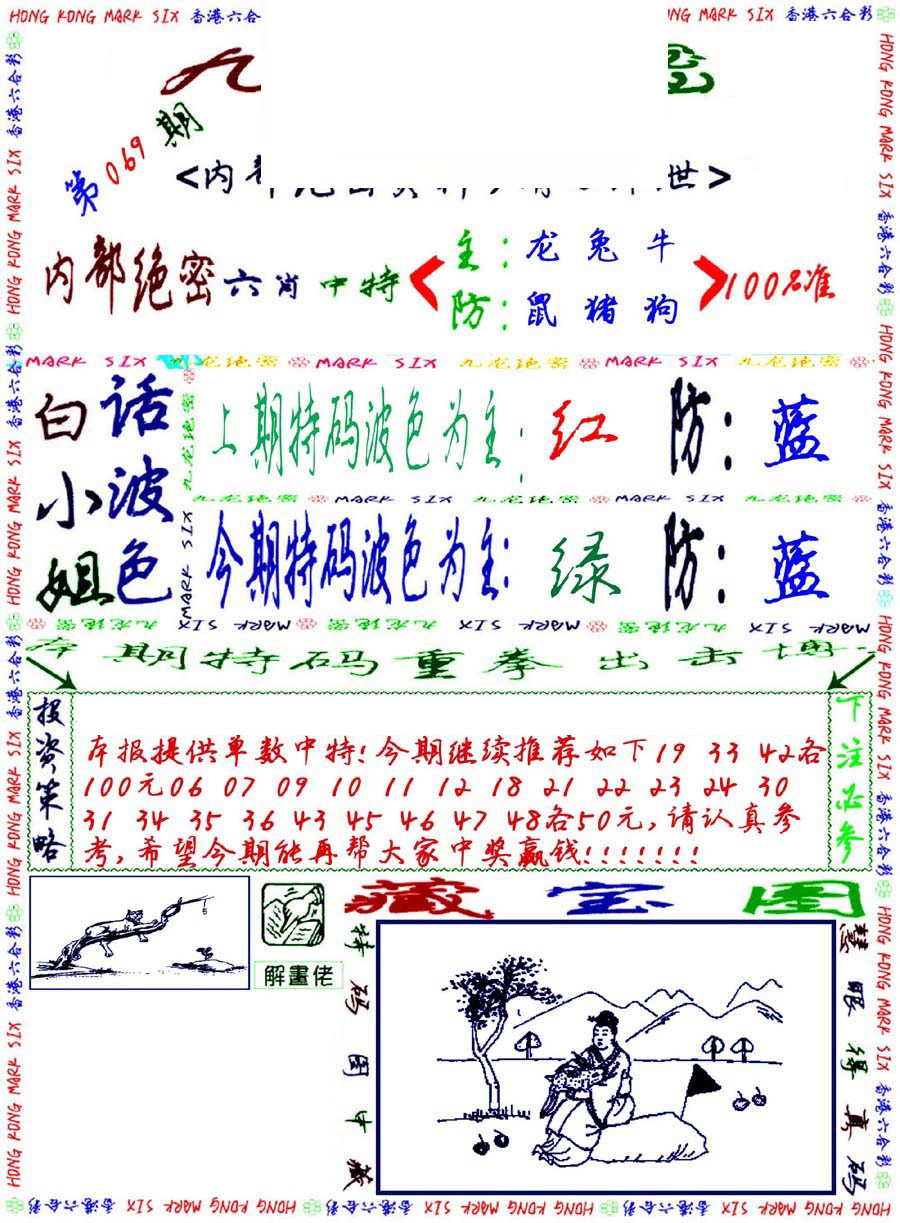 HONG KONG MARK SIX 香港六合彩
九
密
第069期
<内部
世>
内部绝密六肖中特
主：龙兔牛
防：鼠猪狗
100%准
MARK SIX 九龙绝密 MARK SIX 九龙绝密 MARK SIX 九龙绝密
白话小波姐色
上期特码波色为主：红 防：蓝
九龙绝密 MARK SIX 九龙绝密 MARK SIX 九龙绝密
今期特码波色为主：绿 防：蓝
本期特码重拳出击博
投资策略
本报提供单数中特!今期继续推荐如下19 33 42各
100元06 07 09 10 11 12 18 21 22 23 24 30
31 34 35 36 43 45 46 47 48各50元,请认真参
考,希望今期能再帮大家中奖赢钱!!!!!!!
下注必参
解畫佬
藏宝图
特码图中藏
慧眼得真码